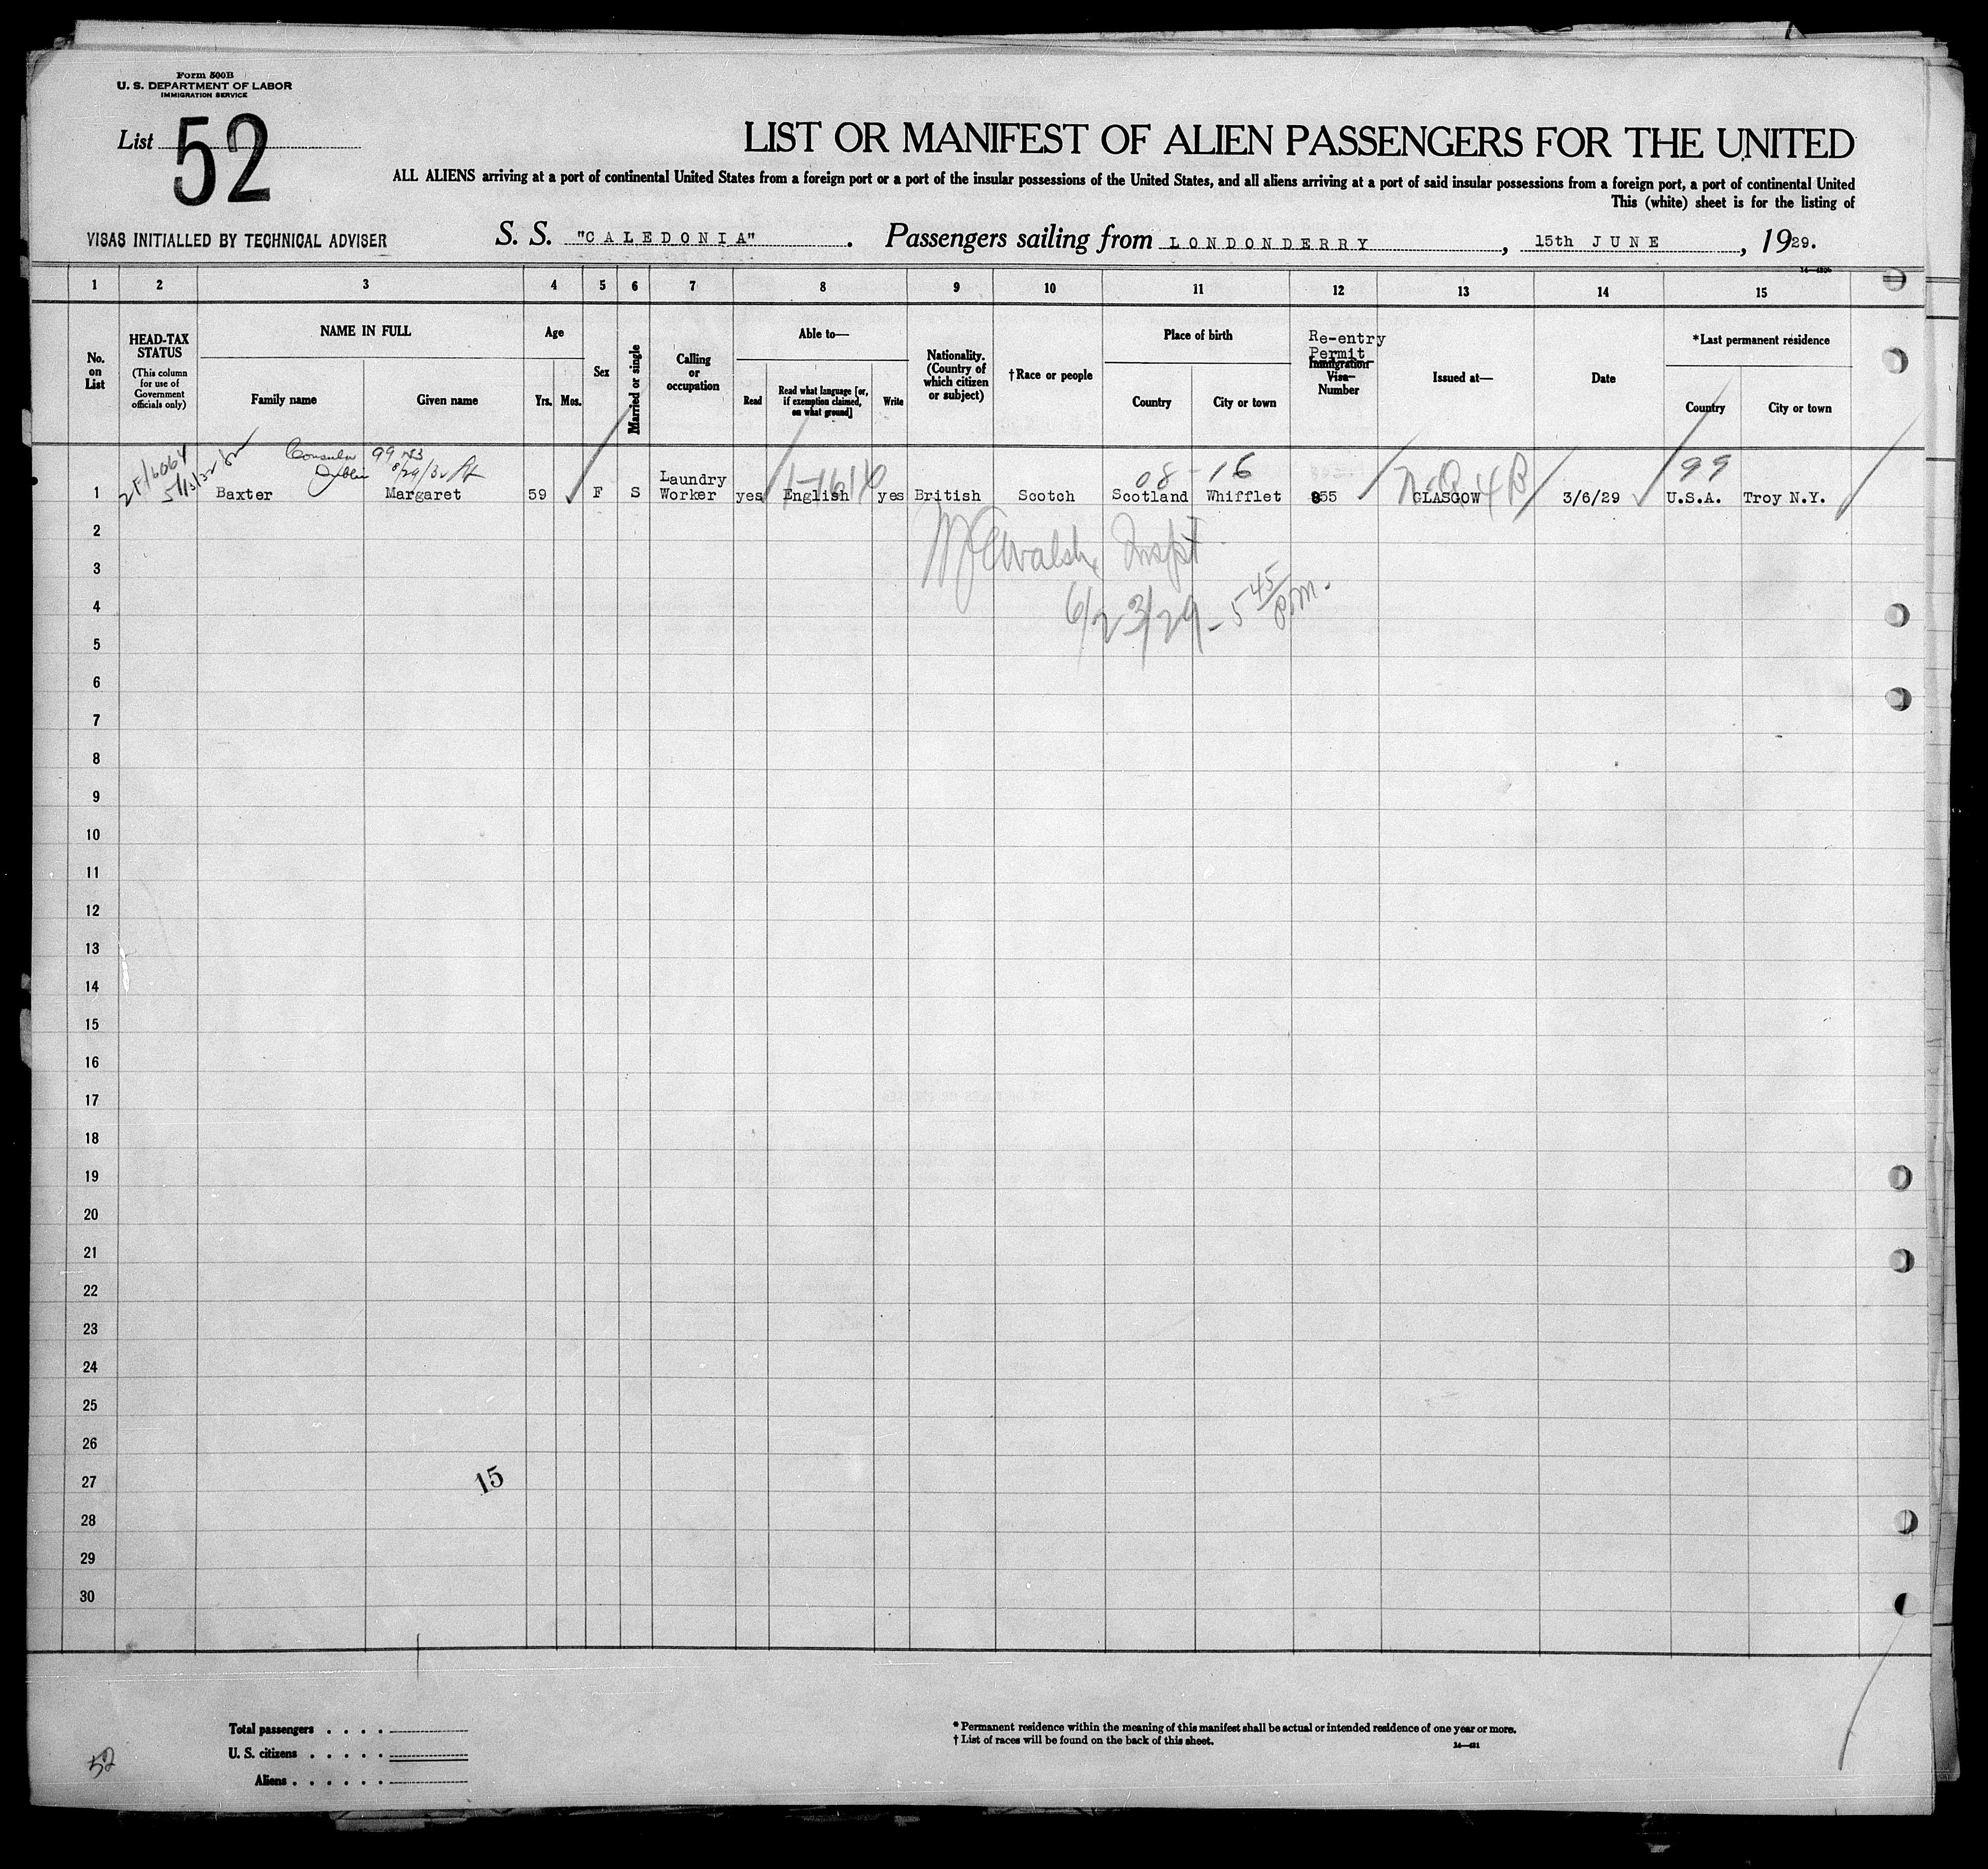 Form 500B
U. S. DEPARTMENT OF LABOR
IMMIGRATION SERVICE
List 52
LIST OR MANIFEST OF ALIEN PASSENGERS FOR THE UNITED
ALL ALIENS arriving at a port of continental United States from a foreign port or a port of the insular possessions of the United States, and all aliens arriving at a port of said insular possessions from a foreign port, a port of continental United
This (white) sheet is for the listing of
VISAS INITIALLED BY TECHNICAL ADVISER
S. S. "CALEDONIA". Passengers sailing from LONDONDERRY, 15th JUNE, 1929.
1 2 3 4 5 6 7 8 9 10 11 12 13 14 15
No. on List
HEAD-TAX STATUS
(This column for use of Government officials only)
NAME IN FULL
Family name Given name
Age
Yrs. Mos.
Sex
Married or single
Calling or occupation
Able to—
Read
Read what language [or, if exemption claimed, on what ground]
Write
Nationality. (Country of which citizen or subject)
†Race or people
Place of birth
Country City or town
Re-entry Permit
Immigration Visa Number
Issued at—
Date
*Last permanent residence
Country City or town
Consular 99
8/29/32
08-16
99
1 Baxter Margaret 59 F S Laundry Worker yes English yes British Scotch Scotland Whifflet 855 GLASGOW 3/6/29 U.S.A. Troy N.Y.
2
Walsh Inspt
3
4
6/23/29 - 5 45/P.M.
5
6
7
8
9
10
11
12
13
14
15
16
17
18
19
20
21
22
23
24
25
26
27
15
28
29
30
Total passengers . . . .
U. S. citizens . . . . .
Aliens . . . . . .
52
* Permanent residence within the meaning of this manifest shall be actual or intended residence of one year or more.
† List of races will be found on the back of this sheet.